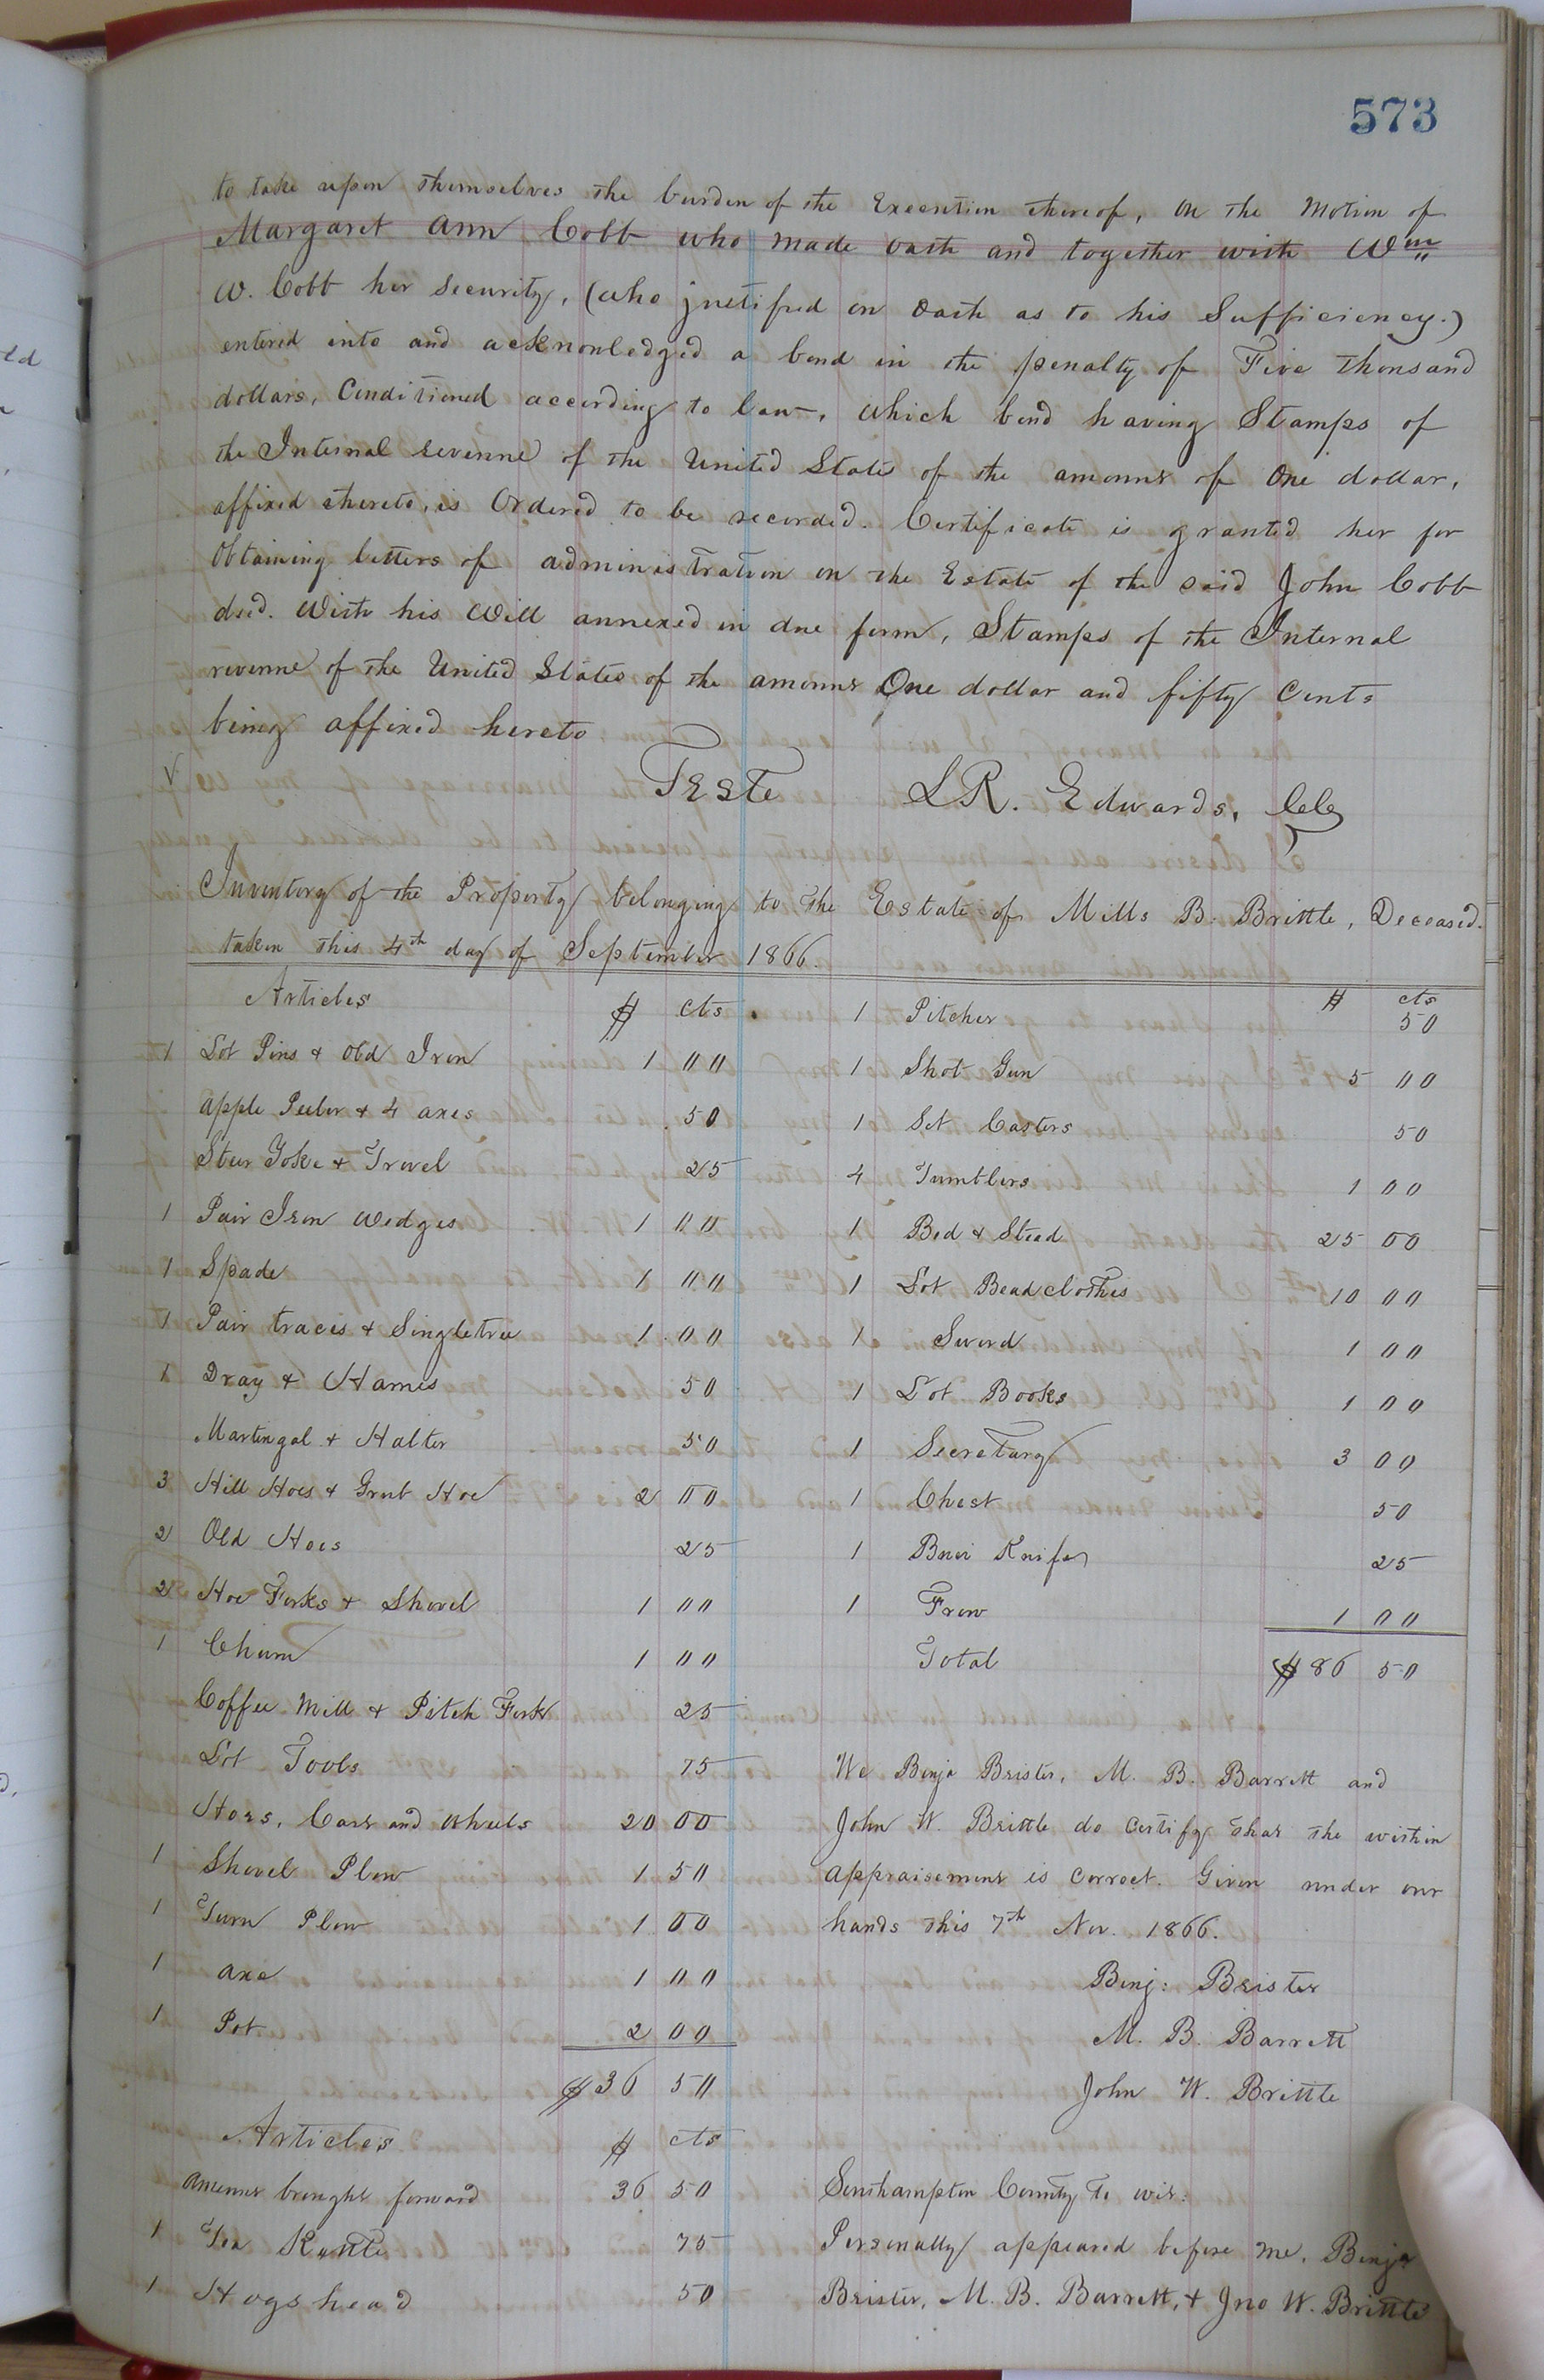 573
to take upon themselves the burden of the Execution thereof, On the Motion of
Margaret Ann Cobb who made oath and together with Wm
W. Cobb her Security, (who justified on Oath as to his Sufficiency.)
entered into and acknowledged a bond in the penalty of Five thousand
dollars, Conditioned according to law, which bond having Stamps of
the Internal revenue of the United States of the amount of One dollar,
affixed thereto, is Ordered to be recorded. Certificate is granted her for
Obtaining letters of administration on the Estate of the said John Cobb
decd. With his Will annexed in due form, Stamps of the Internal
revenue of the United States of the amount One dollar and fifty Cents
being affixed hereto
Teste L R. Edwards, Clk
Inventory of the Property belonging to the Estate of Mills B. Brittle, Deceased.
taken this 4th day of September 1866.
Articles $ cts
1 Lot Pins & Old Iron 1 00
Apple Peeler & 4 axes 50
Steer Yoke & Trovel 25
1 Pair Iron Wedges 1 00
1 Spade 1 00
1 Pair traces & Singletree 1 00
1 Dray & Hames 50
Martingal & Halter 50
3 Hill Hoes & Grub Hoe 2 00
2 Old Hoes 25
2 Hoe Forks & Shovel 1 00
1 Churn 1 00
Coffee Mill & Pitch Fork 25
Lot Tools 75
Hoes, Cart and Wheels 20 00
1 Shovel Plow 1 50
1 Turn Plow 1 00
1 Axe 1 00
1 Pot 2 00
$36 50
Articles $ cts
Amount brought forward 36 50
1 Tea Kettle 75
1 Hogshead 50
$ cts
1 Pitcher 50
1 Shot Gun 5 00
1 Set Casters 50
4 Tumblers 1 00
1 Bed & Stead 25 00
1 Lot Beadclothes 10 00
1 Sword 1 00
1 Lot Books 1 00
1 Secretary 3 00
1 Chest 50
1 Knife 25
1 Frow 1 00
Total $86 50
We Benja Brister, M. B. Barrett and
John W. Brittle do certify that the within
appraisement is correct. Given under our
hands this 7th Nov. 1866.
Benj: Brister
M. B. Barrett
John W. Brittle
Southampton County To wit:
Personally appeared before me, Benja
Brister, M. B. Barrett, & Jno W. Brittle